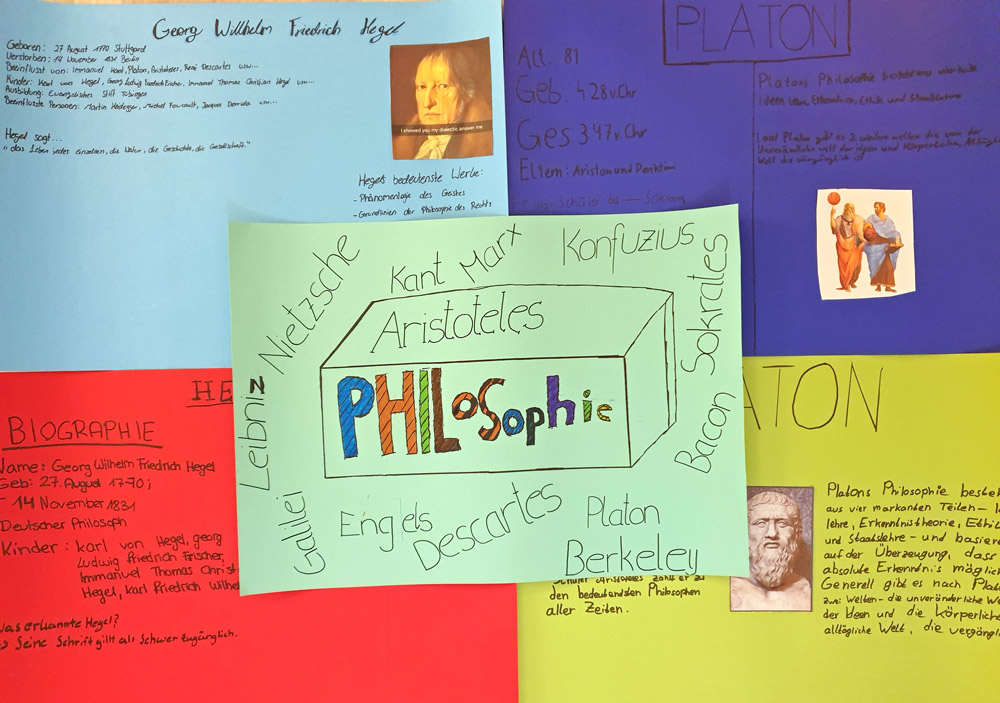 Georg Willhelm Friedrich Hegel
Geboren: 27 August 1770 Stuttgard
Verstorben: 14 November 1831 Berlin
Beeinflusst von: Immanuel Kant, Platon, Aristoteles, René Descartes usw...
Kinder: Karl von Hegel, Georg Ludwig Friedrich Fischer, Immanuel Thomas Christian Hegel usw...
Ausbildung: Evangelisches Stift Tübingen
Beeinflusste Personen: Martin Heidegger, Michel Foucault, Jaques Derrida usw...
Hegel sagt...
"das Leben jedes Einzelnen, die Natur, die Geschichte, die Gesellschaft."
I showed you my dialectic answer me
Hegels bedeutenste Werke:
- Phänomenlogie des Geistes
- Grundlinien der Philosophie des Rechts
PLATON
Alt: 81
Geb. 428 v.Chr
Ges. 347 v.Chr
Eltern: Ariston und Periktion
Schüler des Sokrates
Platons Philosophie
Ideenlehre, Erkenntnis, Ethik und Staatslehre
Laut Platon gibt es 2 welten die von der
Unveränderliche welt der ideen und Körperlichen, Alltäglichen
Welt die vergänglich ist
Nietzsche
Kant
Marx
Konfuzius
Sokrates
Aristoteles
PHILOSophie
Leibniz
Bacon
Galilei
Engels
Descartes
Platon
Berkeley
HE
BIOGRAPHIE
Name: Georg Wilhelm Friedrich Hegel
Geb: 27. August 1770;
14 November 1831
Deutscher Philosoph
Kinder: Karl von Hegel, georg
Ludwig friedrich Fischer,
Immanuel Thomas Christ
Hegel, karl friedrich Wilhel
Was erkannte Hegel?
Seine Schrift gillt als schwer zugänglich.
ATON
Schüler Aristoteles zählt er zu
den bedeutendsten Philosophen
aller Zeiten.
Platons Philosophie besteh
aus vier markanten Teilen - I
lehre, Erkenntnistheorie, Ethic
und Staatslehre - und basiere
auf der Überzeugung, dass
absolute Erkenntnis möglic
Generell gibt es nach Plato
zwei Welten - die unveränderliche We
der Ideen und die Körperliche
alltägliche Welt, die vergängli